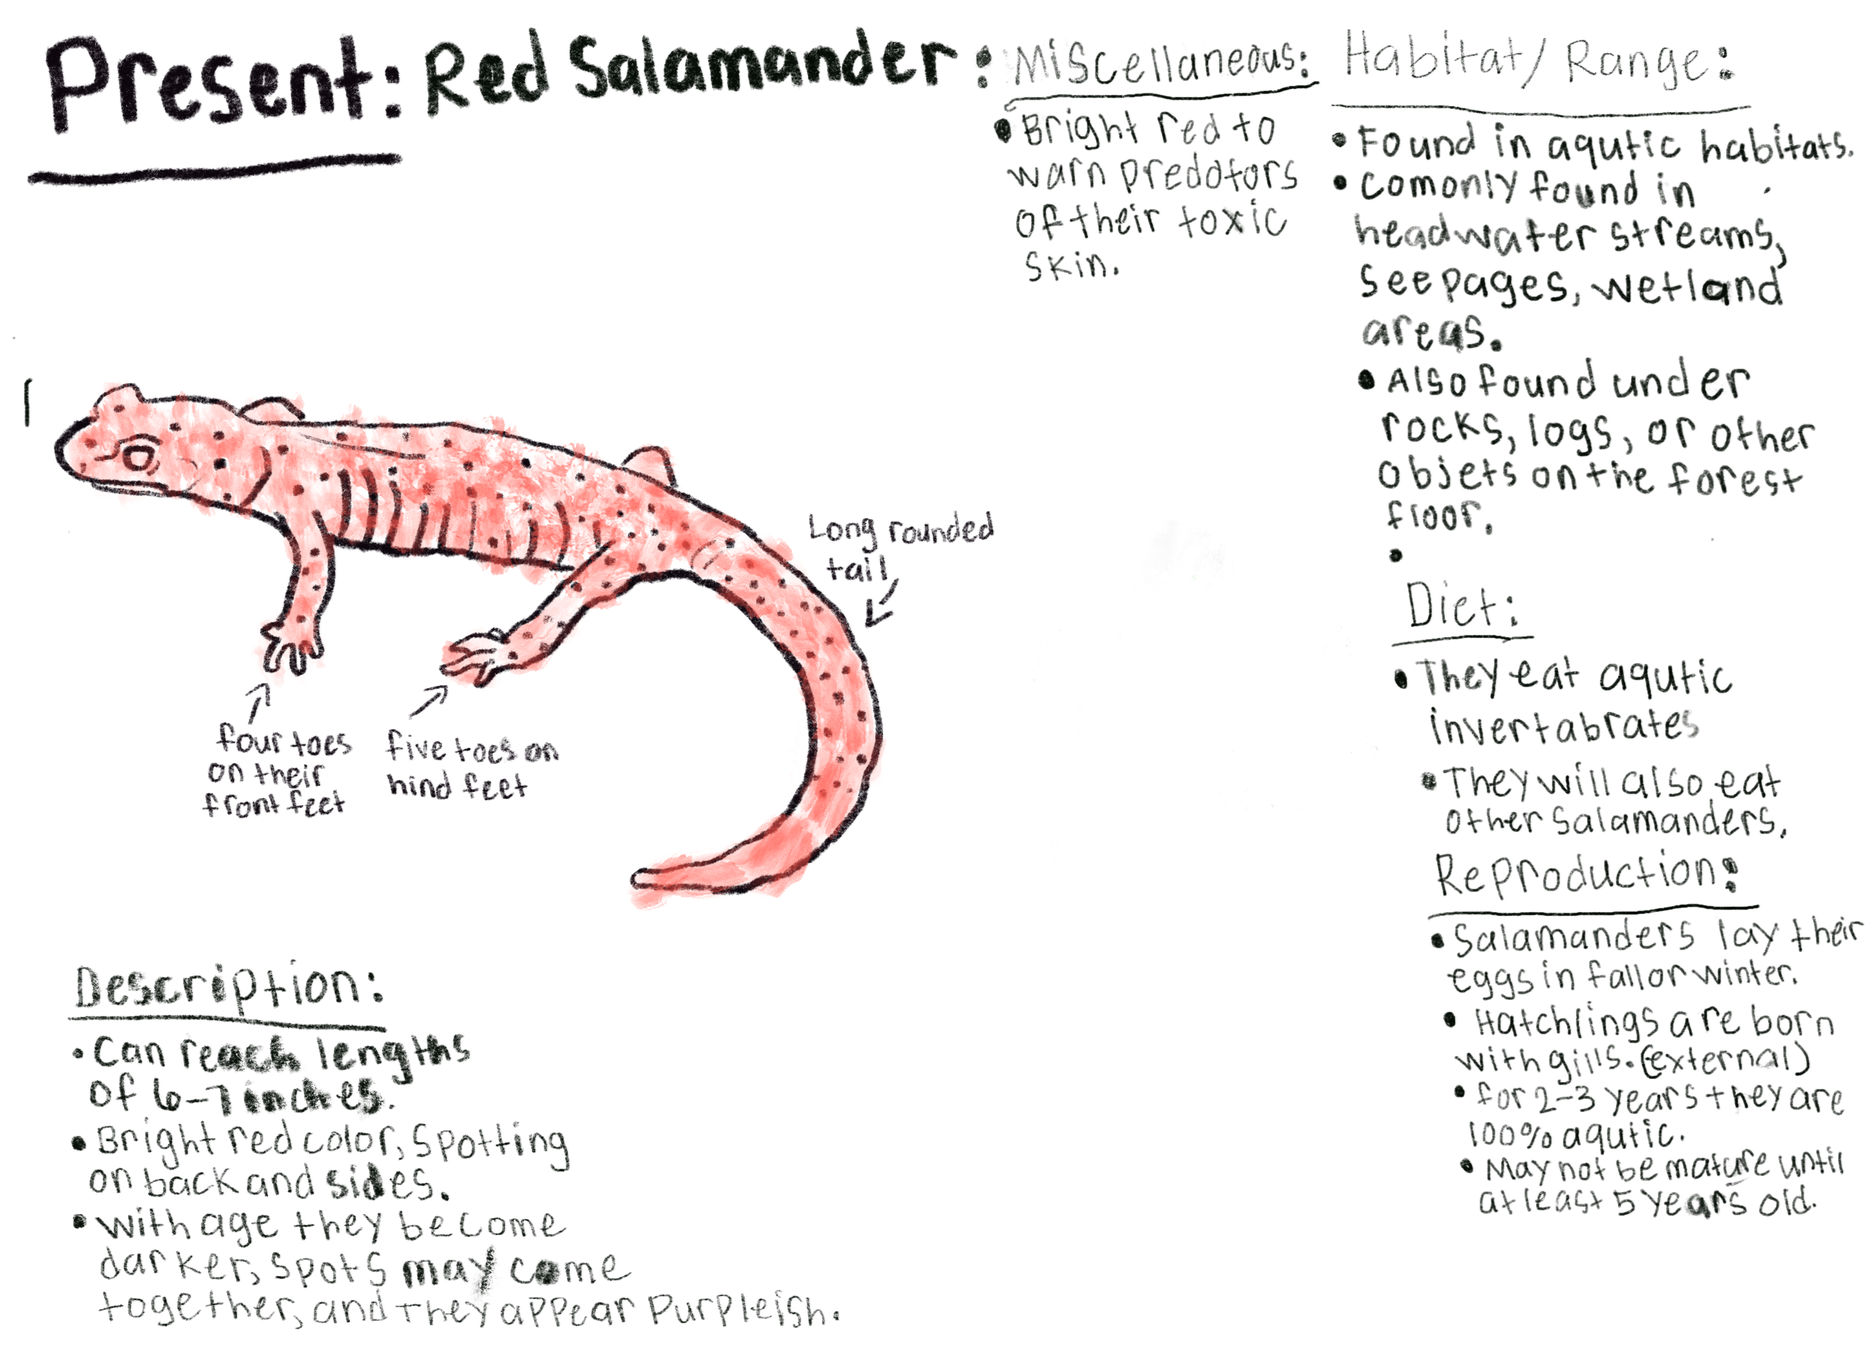 Present: Red Salamander:
Miscellaneous:
• Bright red to
warn predotors
of their toxic
skin.
Habitat/Range:
• Found in aqutic habitats.
• comonly found in
headwater streams,
seepages, wetland
areas.
• Also found under
rocks, logs, or other
objets on the forest
floor.
•
Diet:
• They eat aqutic
invertabrates
• They will also eat
other salamanders.
Reproduction:
• Salamanders lay their
eggs in fall or winter.
• Hatchlings are born
with gills. (external)
• for 2-3 years they are
100% aqutic.
• May not be mature until
at least 5 years old.
Long rounded
tail
four toes
on their
front feet
five toes on
hind feet
Description:
• Can reach lengths
of 6-7 inches.
• Bright red color, spotting
on back and sides.
• with age they become
darker, spots may come
together, and they appear purpleish.